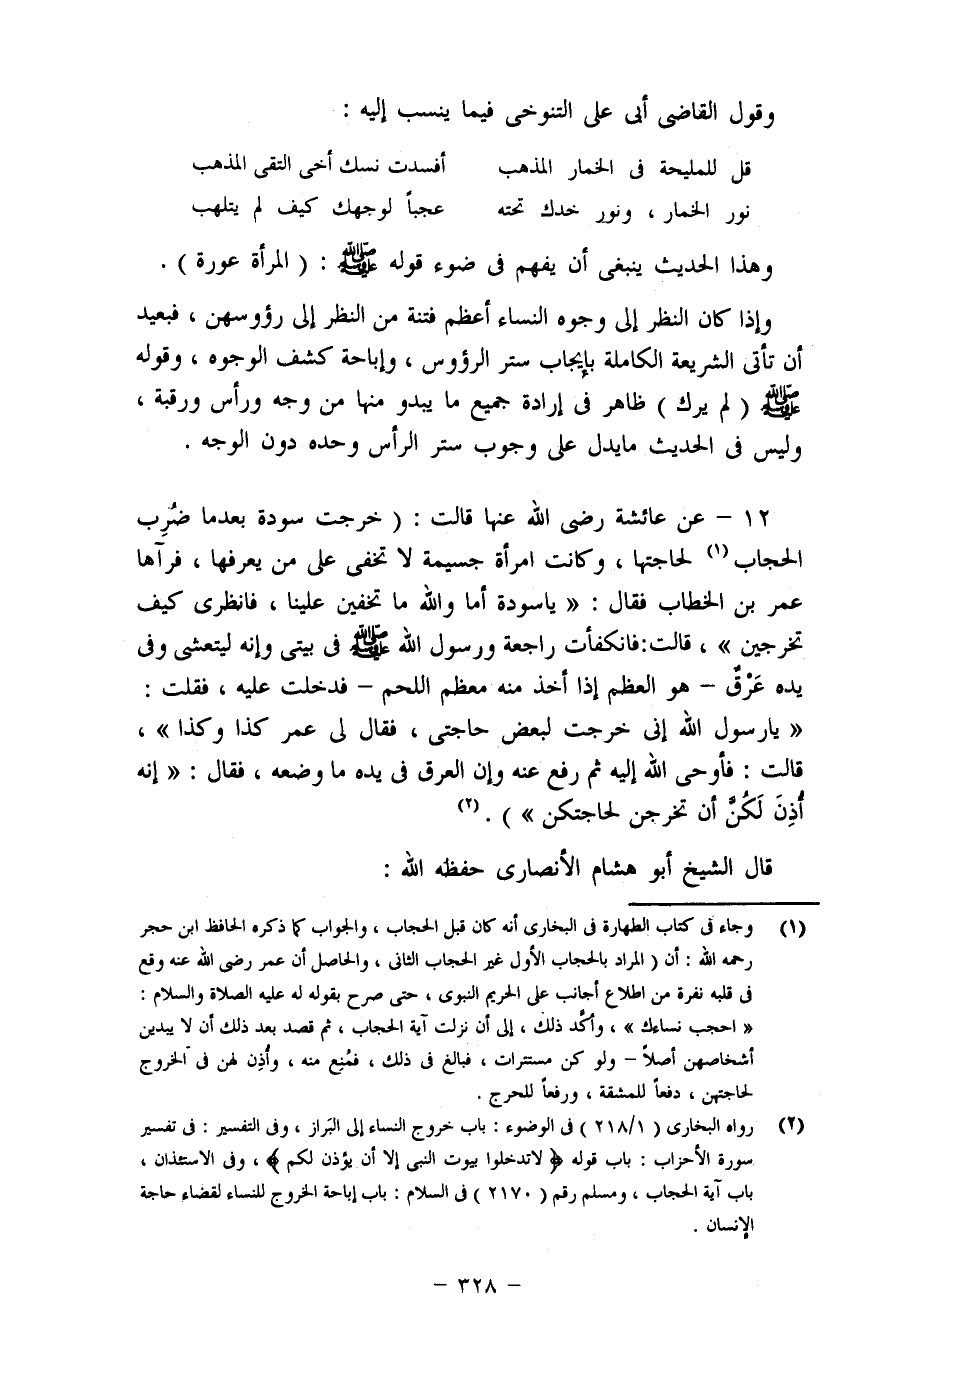 وقول القاضى أبى على التنوخى فيما ينسب إليه :
قل للمليحة فى الخمار المذهب    أفسدت نسك أخى التقى المذهب
نور الخمار ، ونور خدك تحته    عجباً لوجهك كيف لم يتلهب
وهذا الحديث ينبغى أن يفهم فى ضوء قوله ﷺ : ( المرأة عورة ) .
وإذا كان النظر إلى وجوه النساء أعظم فتنة من النظر إلى رؤوسهن ، فبعيد
أن تأتى الشريعة الكاملة بإيجاب ستر الرؤوس ، وإباحة كشف الوجوه ، وقوله
ﷺ ( لم يرك ) ظاهر فى إرادة جميع ما يبدو منها من وجه ورأس ورقبة ،
وليس فى الحديث مايدل على وجوب ستر الرأس وحده دون الوجه .
١٢ – عن عائشة رضى الله عنها قالت : ( خرجت سودة بعدما ضُرِب
الحجاب(١) لحاجتها ، وكانت امرأة جسيمة لا تخفى على من يعرفها ، فرآها
عمر بن الخطاب فقال : « ياسودة أما والله ما تخفين علينا ، فانظرى كيف
تخرجين » ، قالت:فانكفأت راجعة ورسول الله ﷺ فى بيتى وإنه ليتعشى وفى
يده عَرْقٌ – هو العظم إذا أخذ منه معظم اللحم – فدخلت عليه ، فقلت :
« يارسول الله إنى خرجت لبعض حاجتى ، فقال لى عمر كذا وكذا » ،
قالت : فأوحى الله إليه ثم رفع عنه وإن العرق فى يده ما وضعه ، فقال : « إنه
أُذِنَ لَكُنَّ أن تخرجن لحاجتكن » ) .(٢)
قال الشيخ أبو هشام الأنصارى حفظه الله :
(١) وجاء فى كتاب الطهارة فى البخارى أنه كان قبل الحجاب ، والجواب كما ذكره الحافظ ابن حجر
رحمه الله : أن ( المراد بالحجاب الأول غير الحجاب الثانى ، والحاصل أن عمر رضى الله عنه وقع
فى قلبه نفرة من اطلاع أجانب على الحريم النبوى ، حتى صرح بقوله له عليه الصلاة والسلام :
« احجب نساءك » ، وأكَّد ذلك ، إلى أن نزلت آية الحجاب ، ثم قصد بعد ذلك أن لا يبدين
أشخاصهن أصلاً – ولو كن مستترات ، فبالغ فى ذلك ، فمُنِع منه ، وأُذِن لهن فى الخروج
لحاجتهن ، دفعاً للمشقة ، ورفعاً للحرج .
(٢) رواه البخارى ( ٢١٨/١ ) فى الوضوء : باب خروج النساء إلى البَراز ، وفى التفسير : فى تفسير
سورة الأحزاب : باب قوله ﴿ لاتدخلوا بيوت النبى إلا أن يؤذن لكم ﴾ ، وفى الاستئذان ،
باب آية الحجاب ، ومسلم رقم ( ٢١٧٠ ) فى السلام : باب إباحة الخروج للنساء لقضاء حاجة
الإنسان .
– ٣٢٨ –